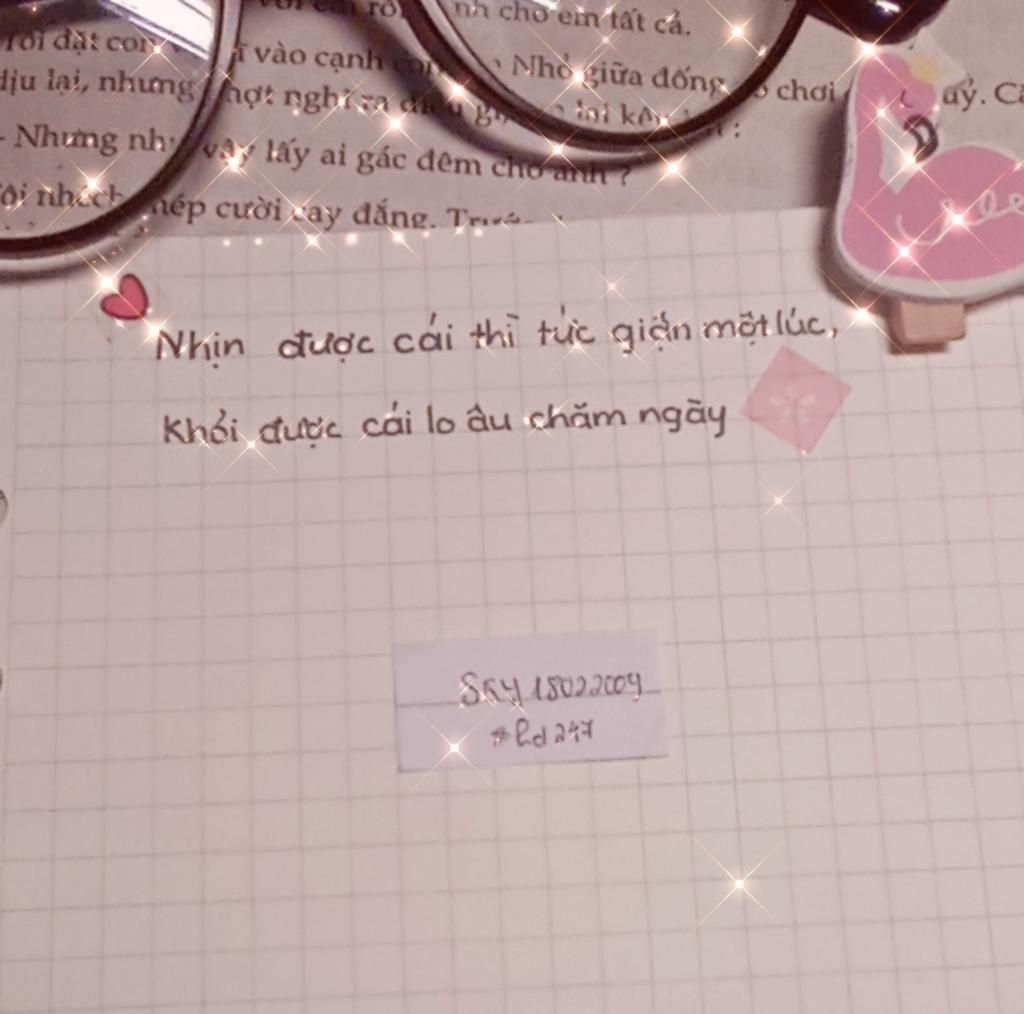 rõ
nh cho em tất cả.
Tôi đặt con vào cạnh Nhỏ giữa đống chơi ấy.
dịu lại, nhưng chợt nghĩ ra
- Nhưng như vậy lấy ai gác đêm cho anh ?
Tôi nhếch mép cười cay đắng.
Nhịn được cái thì tức giận một lúc,
Khỏi được cái lo âu chăm ngày
SKY18022009
#Rd247